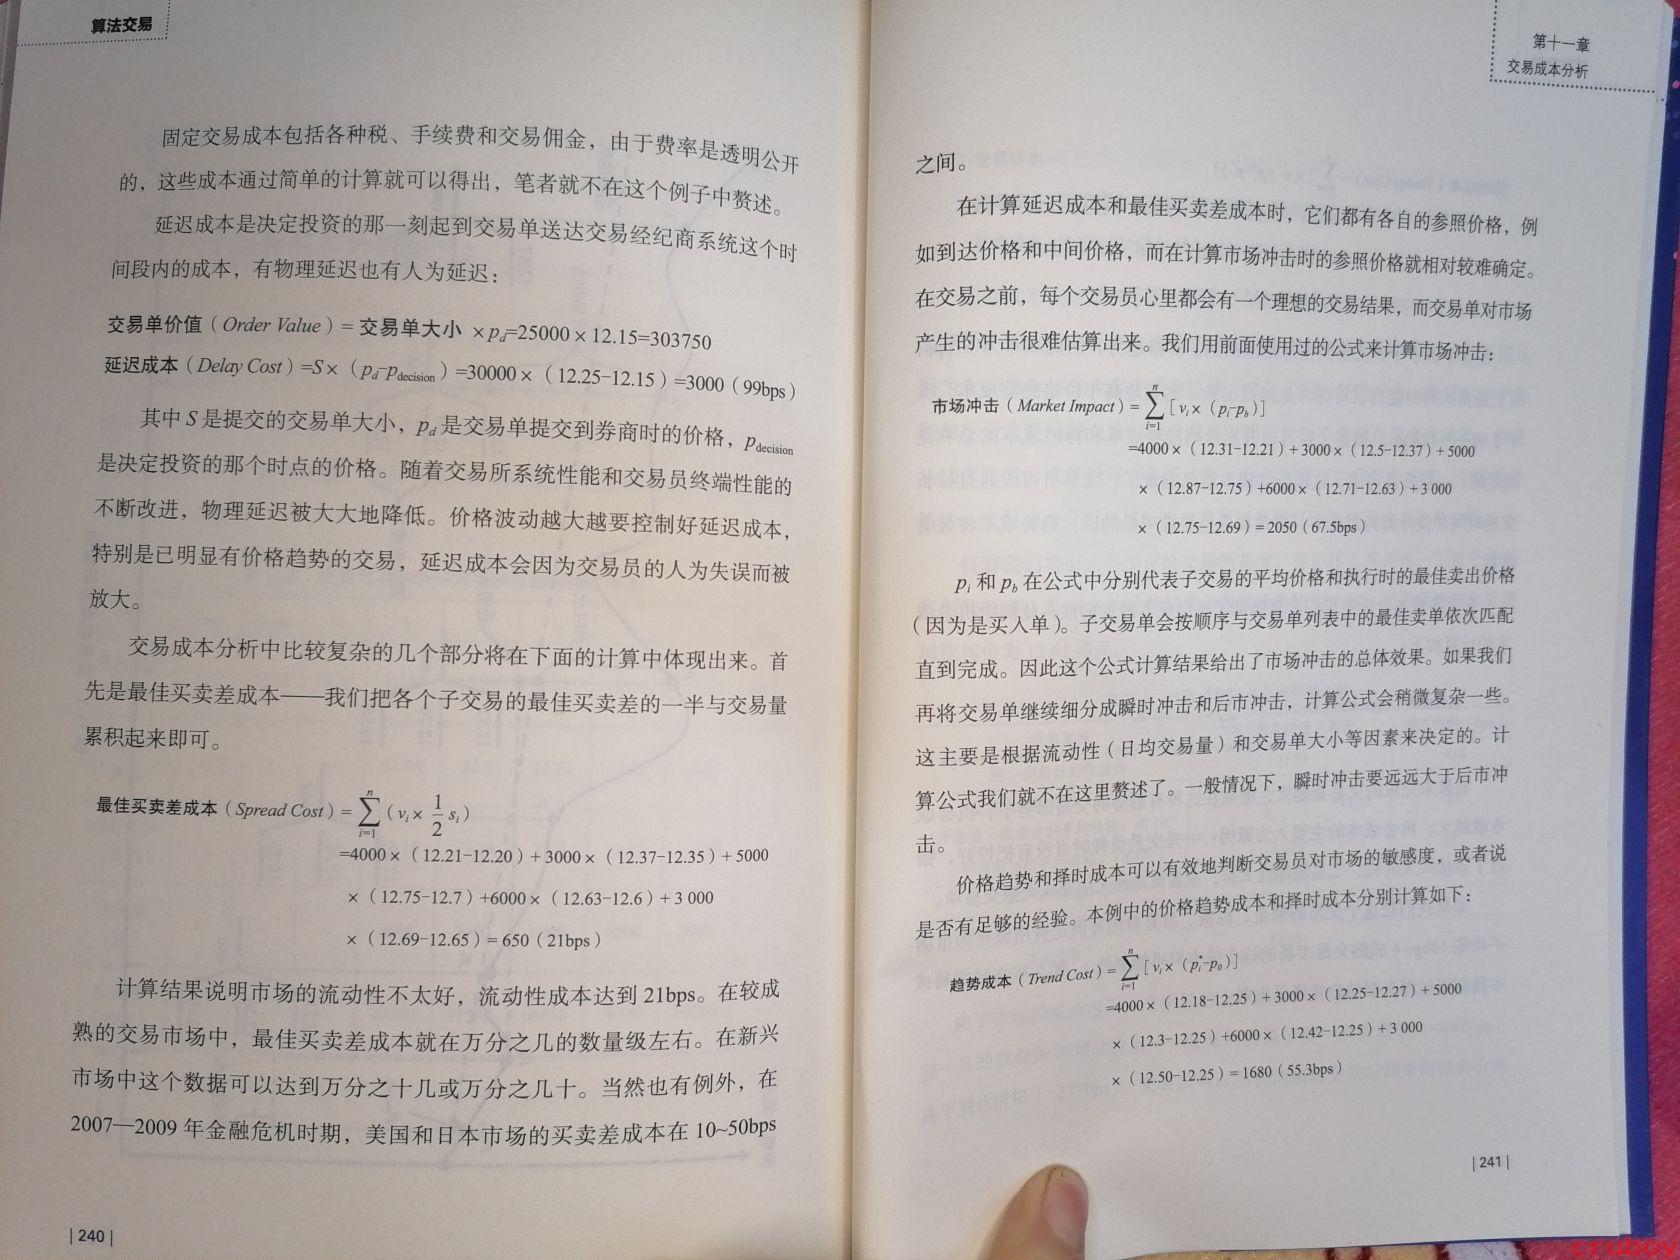 算法交易
固定交易成本包括各种税、手续费和交易佣金，由于费率是透明公开
的，这些成本通过简单的计算就可以得出，笔者就不在这个例子中赘述。
延迟成本是决定投资的那一刻起到交易单送达交易经纪商系统这个时
间段内的成本，有物理延迟也有人为延迟：
交易单价值（Order Value）= 交易单大小 ×p_d=25000×12.15=303750
延迟成本（Delay Cost）=S×（p_d-p_decision）=30000×（12.25-12.15）=3000（99bps）
其中 S 是提交的交易单大小，p_d 是交易单提交到券商时的价格，p_decision
是决定投资的那个时点的价格。随着交易所系统性能和交易员终端性能的
不断改进，物理延迟被大大地降低。价格波动越大越要控制好延迟成本，
特别是已明显有价格趋势的交易，延迟成本会因为交易员的人为失误而被
放大。
交易成本分析中比较复杂的几个部分将在下面的计算中体现出来。首
先是最佳买卖差成本——我们把各个子交易的最佳买卖差的一半与交易量
累积起来即可。
最佳买卖差成本（Spread Cost）= ∑_{i=1}^{n}（v_i× 1/2 s_i）
=4000×（12.21-12.20）+3000×（12.37-12.35）+5000
×（12.75-12.7）+6000×（12.63-12.6）+3 000
×（12.69-12.65）= 650（21bps）
计算结果说明市场的流动性不太好，流动性成本达到 21bps。在较成
熟的交易市场中，最佳买卖差成本就在万分之几的数量级左右。在新兴
市场中这个数据可以达到万分之十几或万分之几十。当然也有例外，在
2007—2009 年金融危机时期，美国和日本市场的买卖差成本在 10~50bps
|240|
第十一章
交易成本分析
之间。
在计算延迟成本和最佳买卖差成本时，它们都有各自的参照价格，例
如到达价格和中间价格，而在计算市场冲击时的参照价格就相对较难确定。
在交易之前，每个交易员心里都会有一个理想的交易结果，而交易单对市场
产生的冲击很难估算出来。我们用前面使用过的公式来计算市场冲击：
市场冲击（Market Impact）= ∑_{i=1}^{n}［v_i×（p_i-p_b）］
=4000×（12.31-12.21）+3000×（12.5-12.37）+5000
×（12.87-12.75）+6000×（12.71-12.63）+3 000
×（12.75-12.69）= 2050（67.5bps）
p_i 和 p_b 在公式中分别代表子交易的平均价格和执行时的最佳卖出价格
（因为是买入单）。子交易单会按顺序与交易单列表中的最佳卖单依次匹配
直到完成。因此这个公式计算结果给出了市场冲击的总体效果。如果我们
再将交易单继续细分成瞬时冲击和后市冲击，计算公式会稍微复杂一些。
这主要是根据流动性（日均交易量）和交易单大小等因素来决定的。计
算公式我们就不在这里赘述了。一般情况下，瞬时冲击要远远大于后市冲
击。
价格趋势和择时成本可以有效地判断交易员对市场的敏感度，或者说
是否有足够的经验。本例中的价格趋势成本和择时成本分别计算如下：
趋势成本（Trend Cost）= ∑_{i=1}^{n}［v_i×（p_i^*-p_0）］
=4000×（12.18-12.25）+3000×（12.25-12.27）+5000
×（12.3-12.25）+6000×（12.42-12.25）+3 000
×（12.50-12.25）= 1680（55.3bps）
|241|